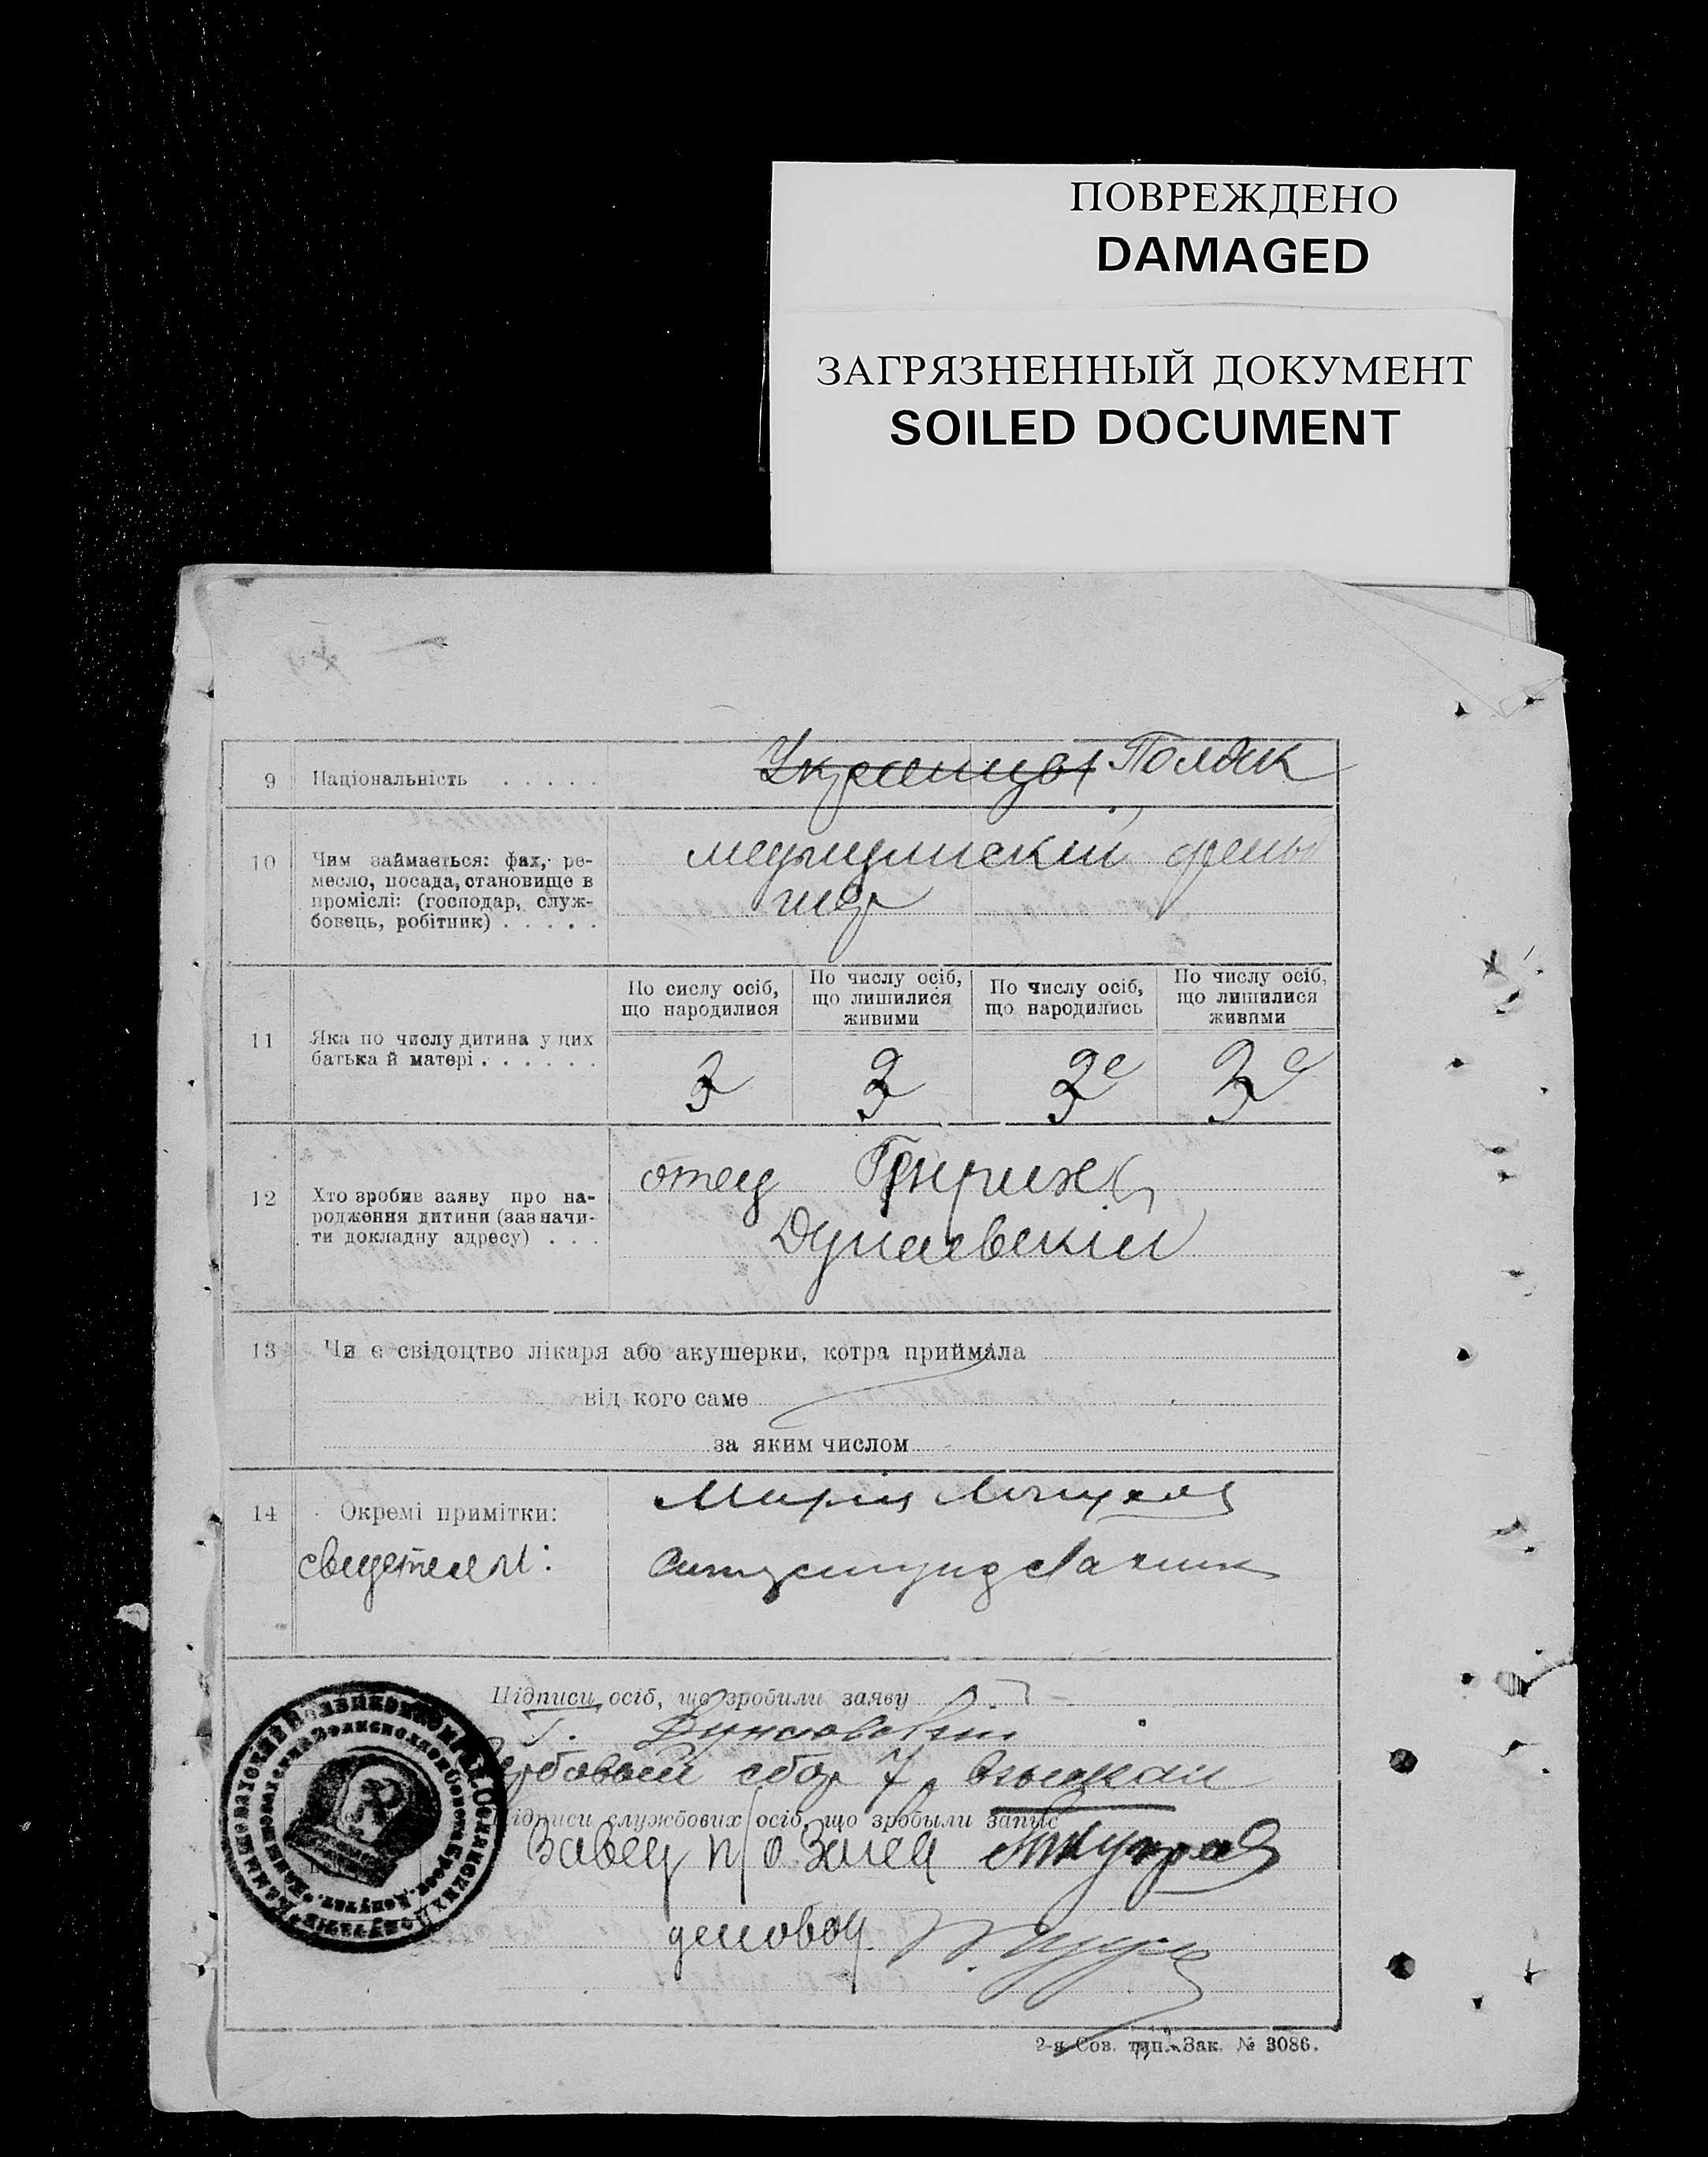 ПОВРЕЖДЕНО
DAMAGED
ЗАГРЯЗНЕННЫЙ ДОКУМЕНТ
SOILED DOCUMENT
9 Національність . . . . . Украинцы Поляк
10 Чим займається: фах, ре-
месло, посада, становище в
проміслі: (господар, служ-
бовець, робітник) . . . . .
медицинскій фель
шер
По сислу осіб,
що народилися
По числу осіб,
що лишилися
живими
По числу осіб,
що народились
По числу осіб,
що лишилися
живими
11 Яка по числу дитина у цих
батька й матері . . . . . .
3 3 3е 3е
12 Хто зробив заяву про на-
родження дитини (зазначи-
ти докладну адресу) . . .
отец Генрихъ
Дунаевскій
13 Чи є свідоцтво лікаря або акушерки, котра приймала
від кого саме
за яким числом
14 Окремі примітки:
свидетели:
Марія
Підписи осіб, що зробили заяву
Г. Дунаевскій
Гербовый сбор 7 р. взыскан
Підписи службових осіб, що зробыли запыс
Завед п/о Загса
деловод
2-я Сов. тип. Зак. № 3086.